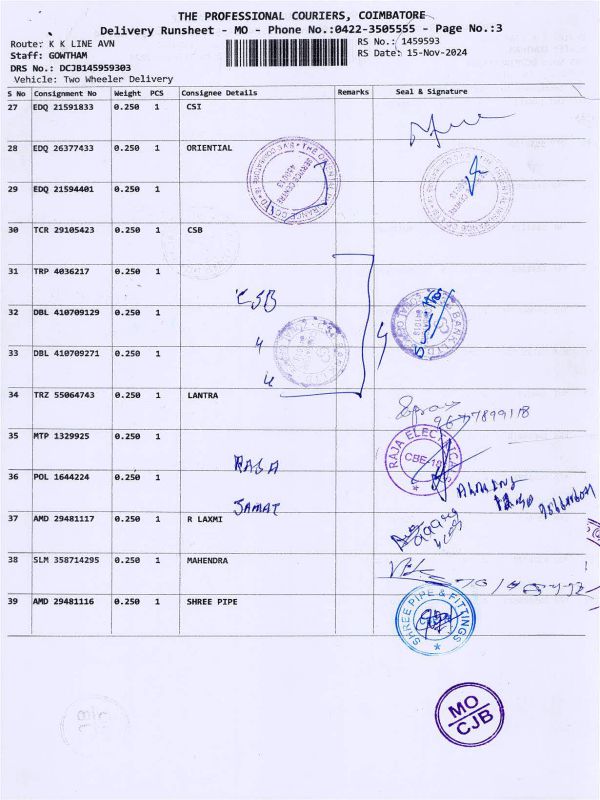 THE PROFESSIONAL COURIERS, COIMBATORE
Delivery Runsheet - MO - Phone No.:0422-3505555 - Page No.:3
Route: K K LINE AVN
RS No.: 1459593
Staff: GOWTHAM
RS Date: 15-Nov-2024
DRS No.: DCJB145959303
Vehicle: Two Wheeler Delivery
S No Consignment No Weight PCS Consignee Details Remarks Seal & Signature
27 EDQ 21591833 0.250 1 CSI
28 EDQ 26377433 0.250 1 ORIENTIAL
29 EDQ 21594401 0.250 1
30 TCR 29105423 0.250 1 CSB
31 TRP 4036217 0.250 1
CSB
32 DBL 410709129 0.250 1
33 DBL 410709271 0.250 1
34 TRZ 55064743 0.250 1 LANTRA
35 MTP 1329925 0.250 1
RAJA ELECTRICALS
CBE-18
RAJA
36 POL 1644224 0.250 1
SAMAT
37 AMD 29481117 0.250 1 R LAXMI
38 SLM 358714295 0.250 1 MAHENDRA
39 AMD 29481116 0.250 1 SHREE PIPE
SHREE PIPE & FITTINGS
MO
CJB